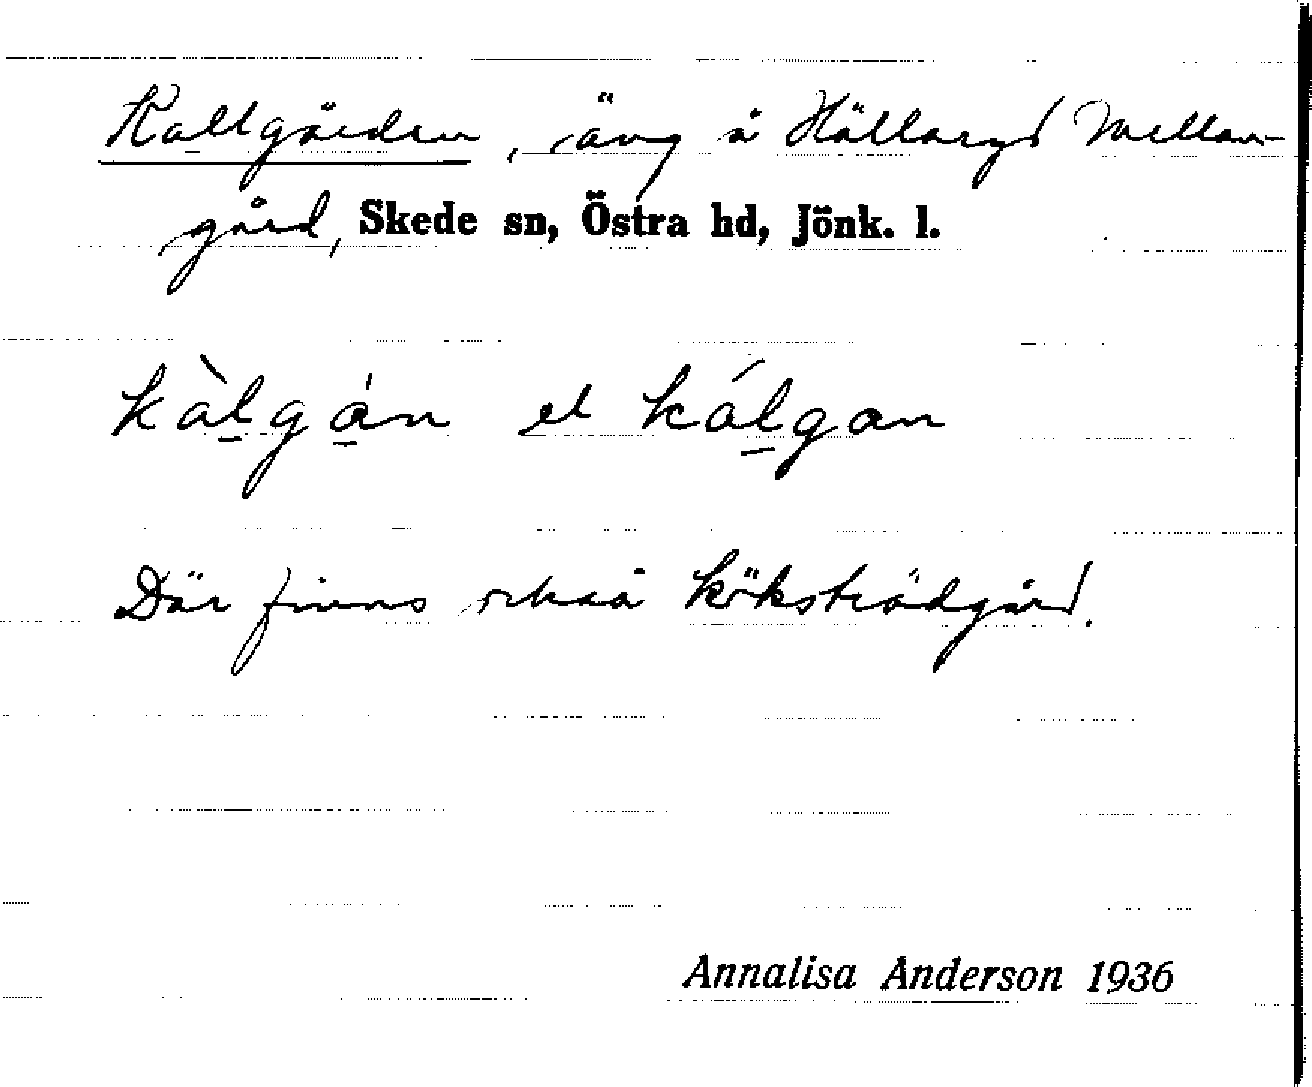 Kallgården, äng å Hällaryd Mellan-
gård, Skede sn, Östra hd, Jönk. l.
kàlgán el kálgan
Där finns också köksträdgård.
Annalisa Anderson 1936